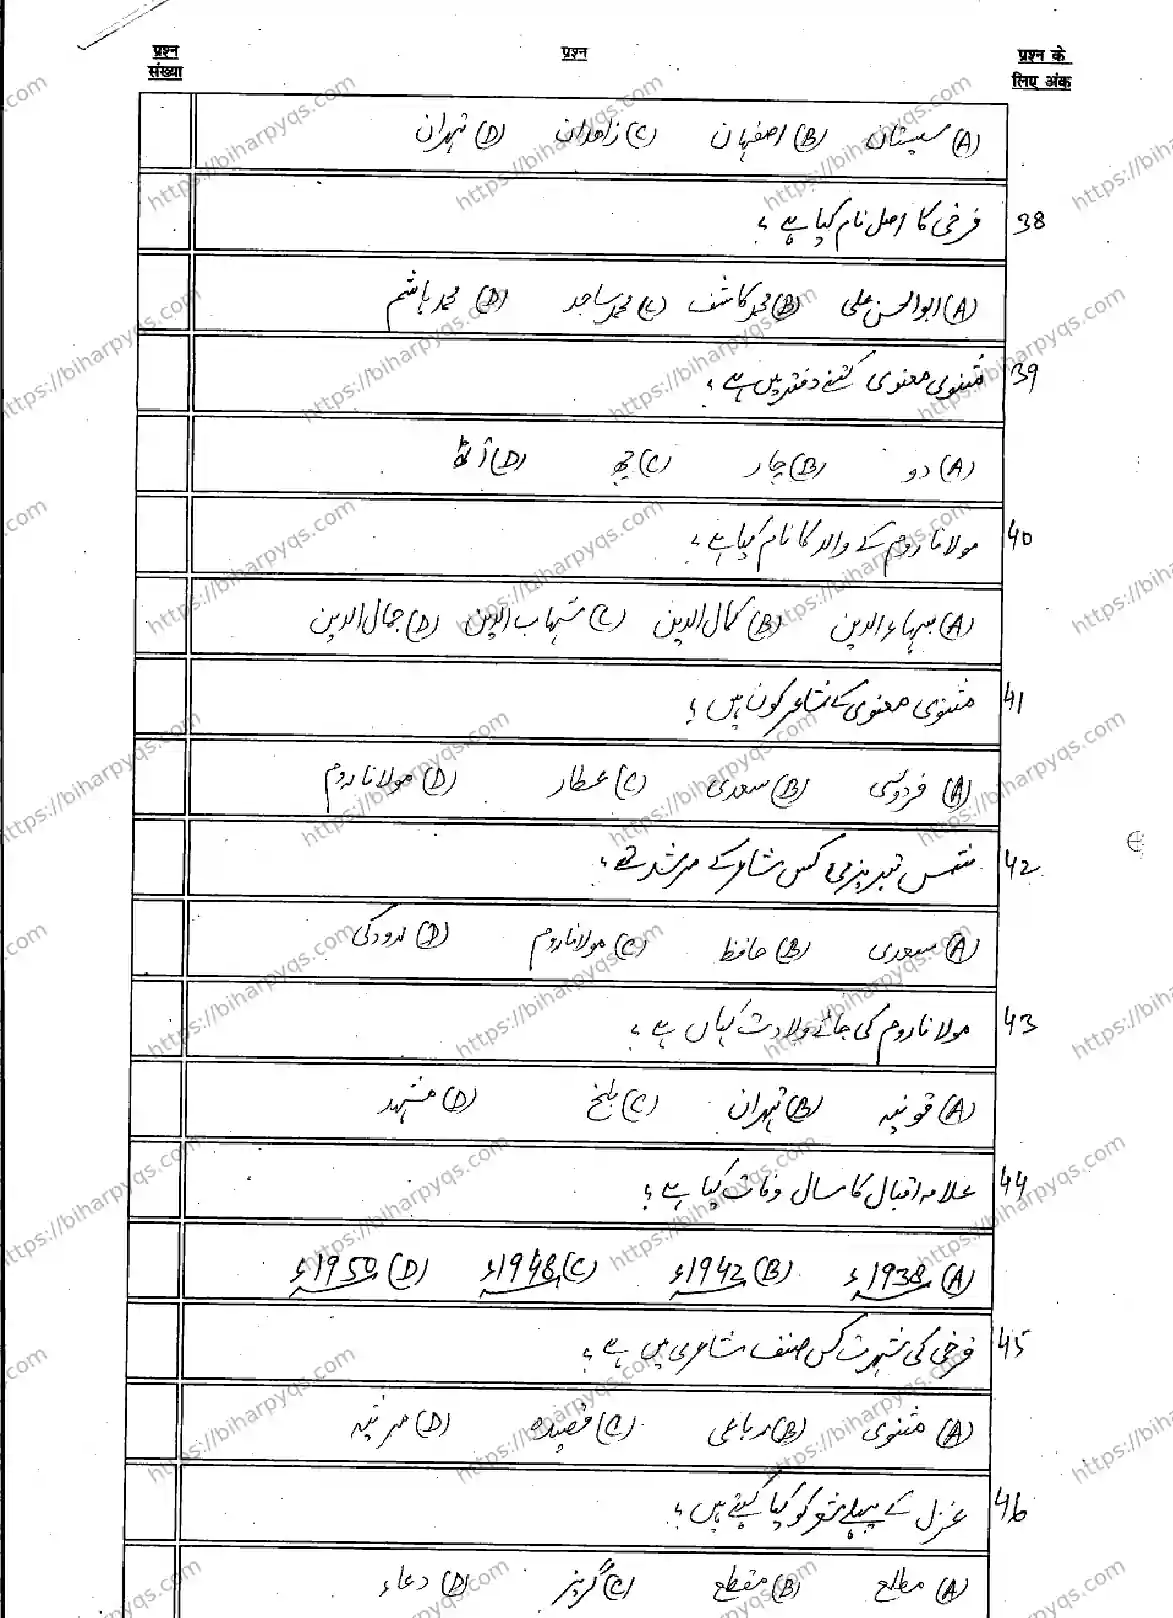 प्रश्न संख्या
प्रश्न
प्रश्न के लिए अंक
(A) سیستان (B) اصفہان (C) زاہدان (D) تہران
38 فرخی کا اصل نام کیا ہے؟
(A) ابوالحسن علی (B) محمد کاشف (C) محمد ساجد (D) محمد ہاشم
39 مثنوی معنوی کتنے دفتر میں ہے؟
(A) دو (B) چار (C) چھ (D) آٹھ
40 مولانا روم کے والد کا نام کیا ہے؟
(A) بہاء الدین (B) کمال الدین (C) شہاب الدین (D) جمال الدین
41 مثنوی معنوی کے شاعر کون ہیں؟
(A) فردوسی (B) سعدی (C) عطار (D) مولانا روم
42 شمس تبریزی کس شاعر کے مرشد تھے؟
(A) سعدی (B) حافظ (C) مولانا روم (D) رودکی
43 مولانا روم کی جائے ولادت کہاں ہے؟
(A) قونیہ (B) تہران (C) بلخ (D) مشہد
44 علامہ اقبال کا سال وفات کیا ہے؟
(A) 1938ء (B) 1942ء (C) 1948ء (D) 1950ء
45 فرخی کی شہرت کس صنف شاعری میں ہے؟
(A) مثنوی (B) رباعی (C) قصیدہ (D) مرثیہ
46 غزل کے پہلے شعر کو کیا کہتے ہیں؟
(A) مطلع (B) مقطع (C) گریز (D) دعاء
https://biharpyqs.com